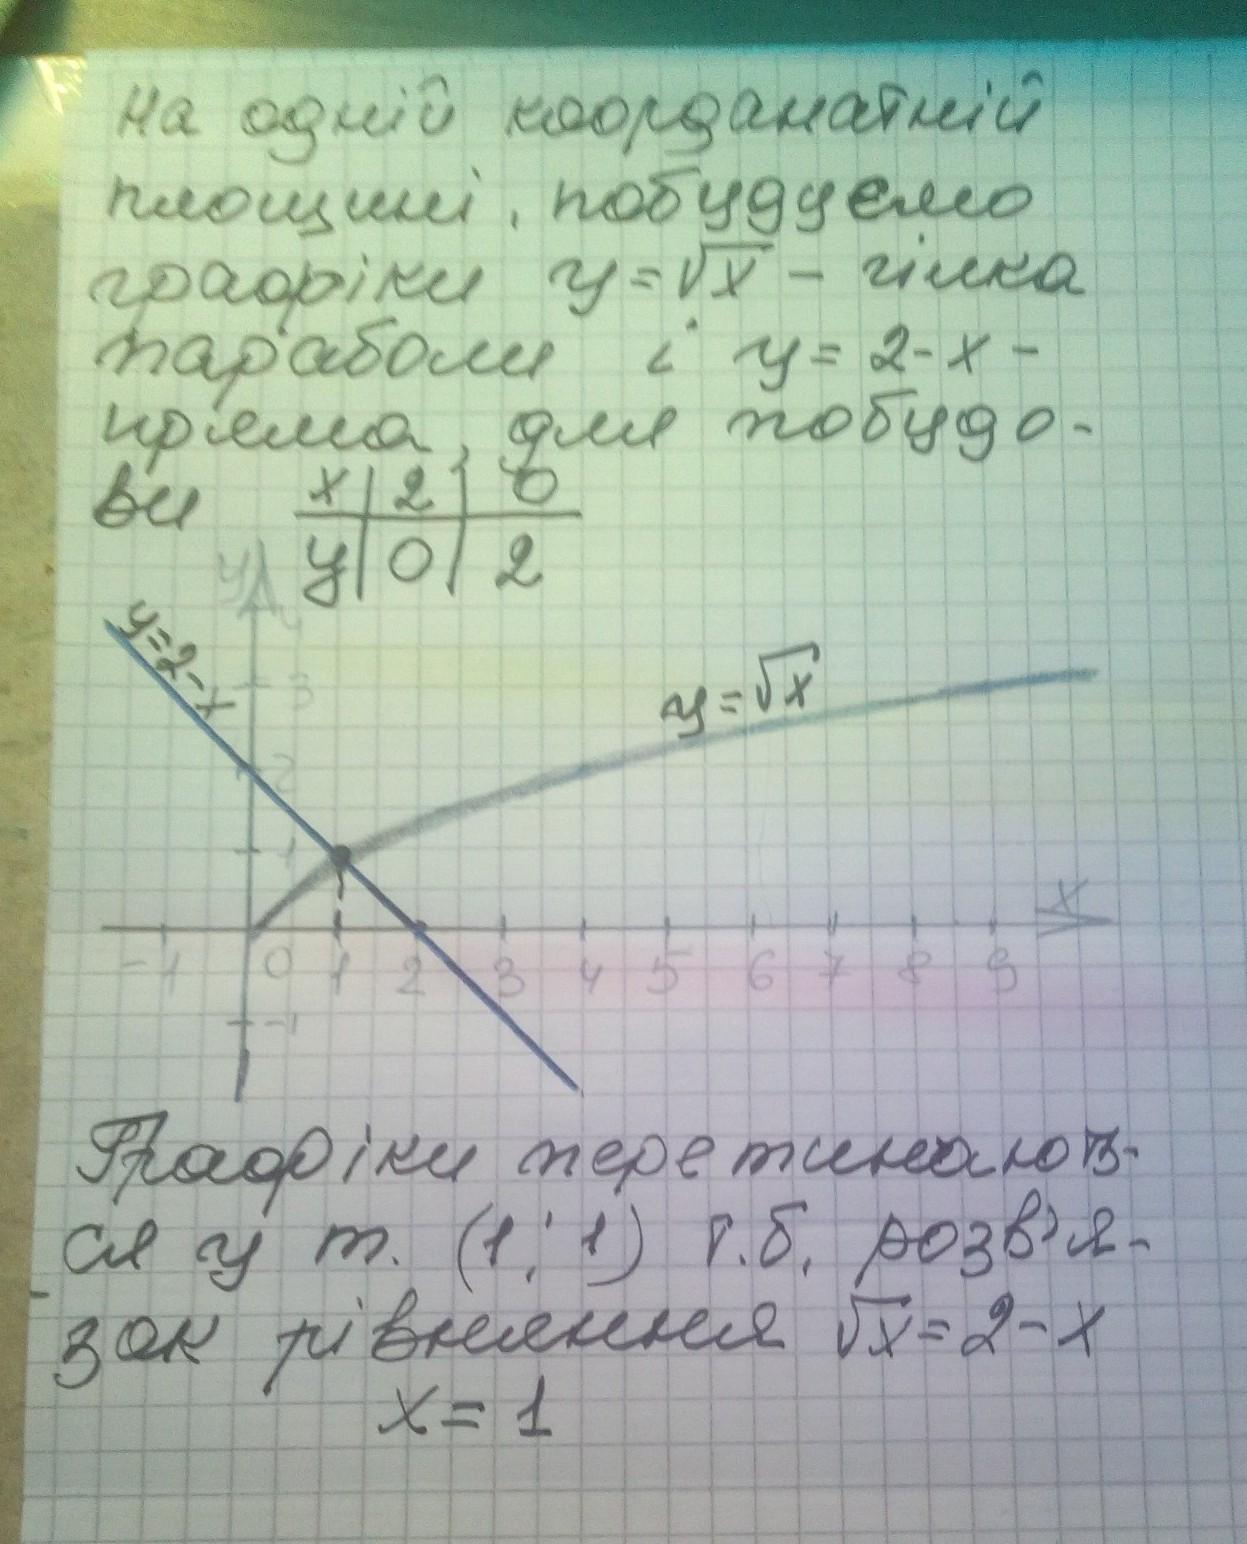 На одній координатній
площині, побудуємо
графіки y=√x - гілка
параболи і y=2-x -
пряма, для побудо-
ви x | 2 | 0
y | 0 | 2
y
y=2-x
3
y=√x
2
1
x
-1 0 1 2 3 4 5 6 7 8 9
-1
Графіки перетинають-
ся у т. (1; 1) т.б. розв'я-
зок рівняння √x=2-x
x=1